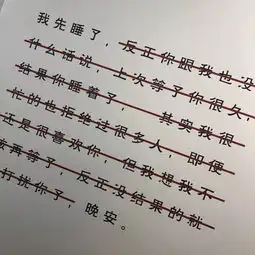 我先睡了，反正你跟我也没
什么话说，上次等了你很久，
结果你睡着了，其实我很
忙的也拒绝过很多人，即便
还是很喜欢你，但我想我不
该再等了，反正没结果的就
打扰你了，晚安。